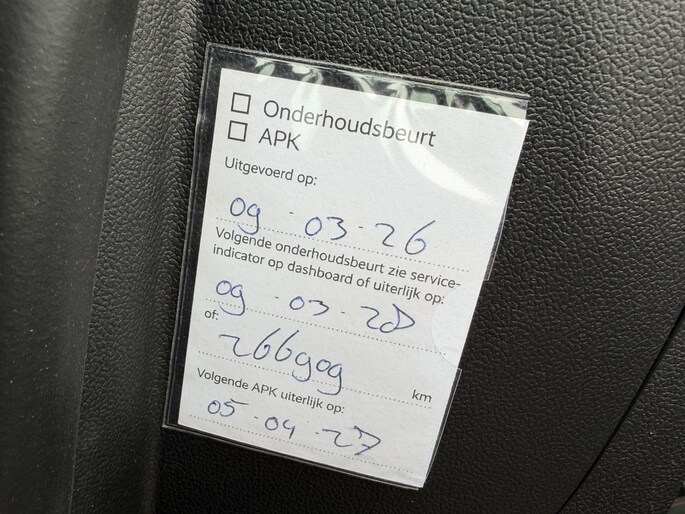 Onderhoudsbeurt
APK
Uitgevoerd op:
09-03-26
Volgende onderhoudsbeurt zie service-
indicator op dashboard of uiterlijk op:
09-03-28
of:
266909 km
Volgende APK uiterlijk op:
05-04-27